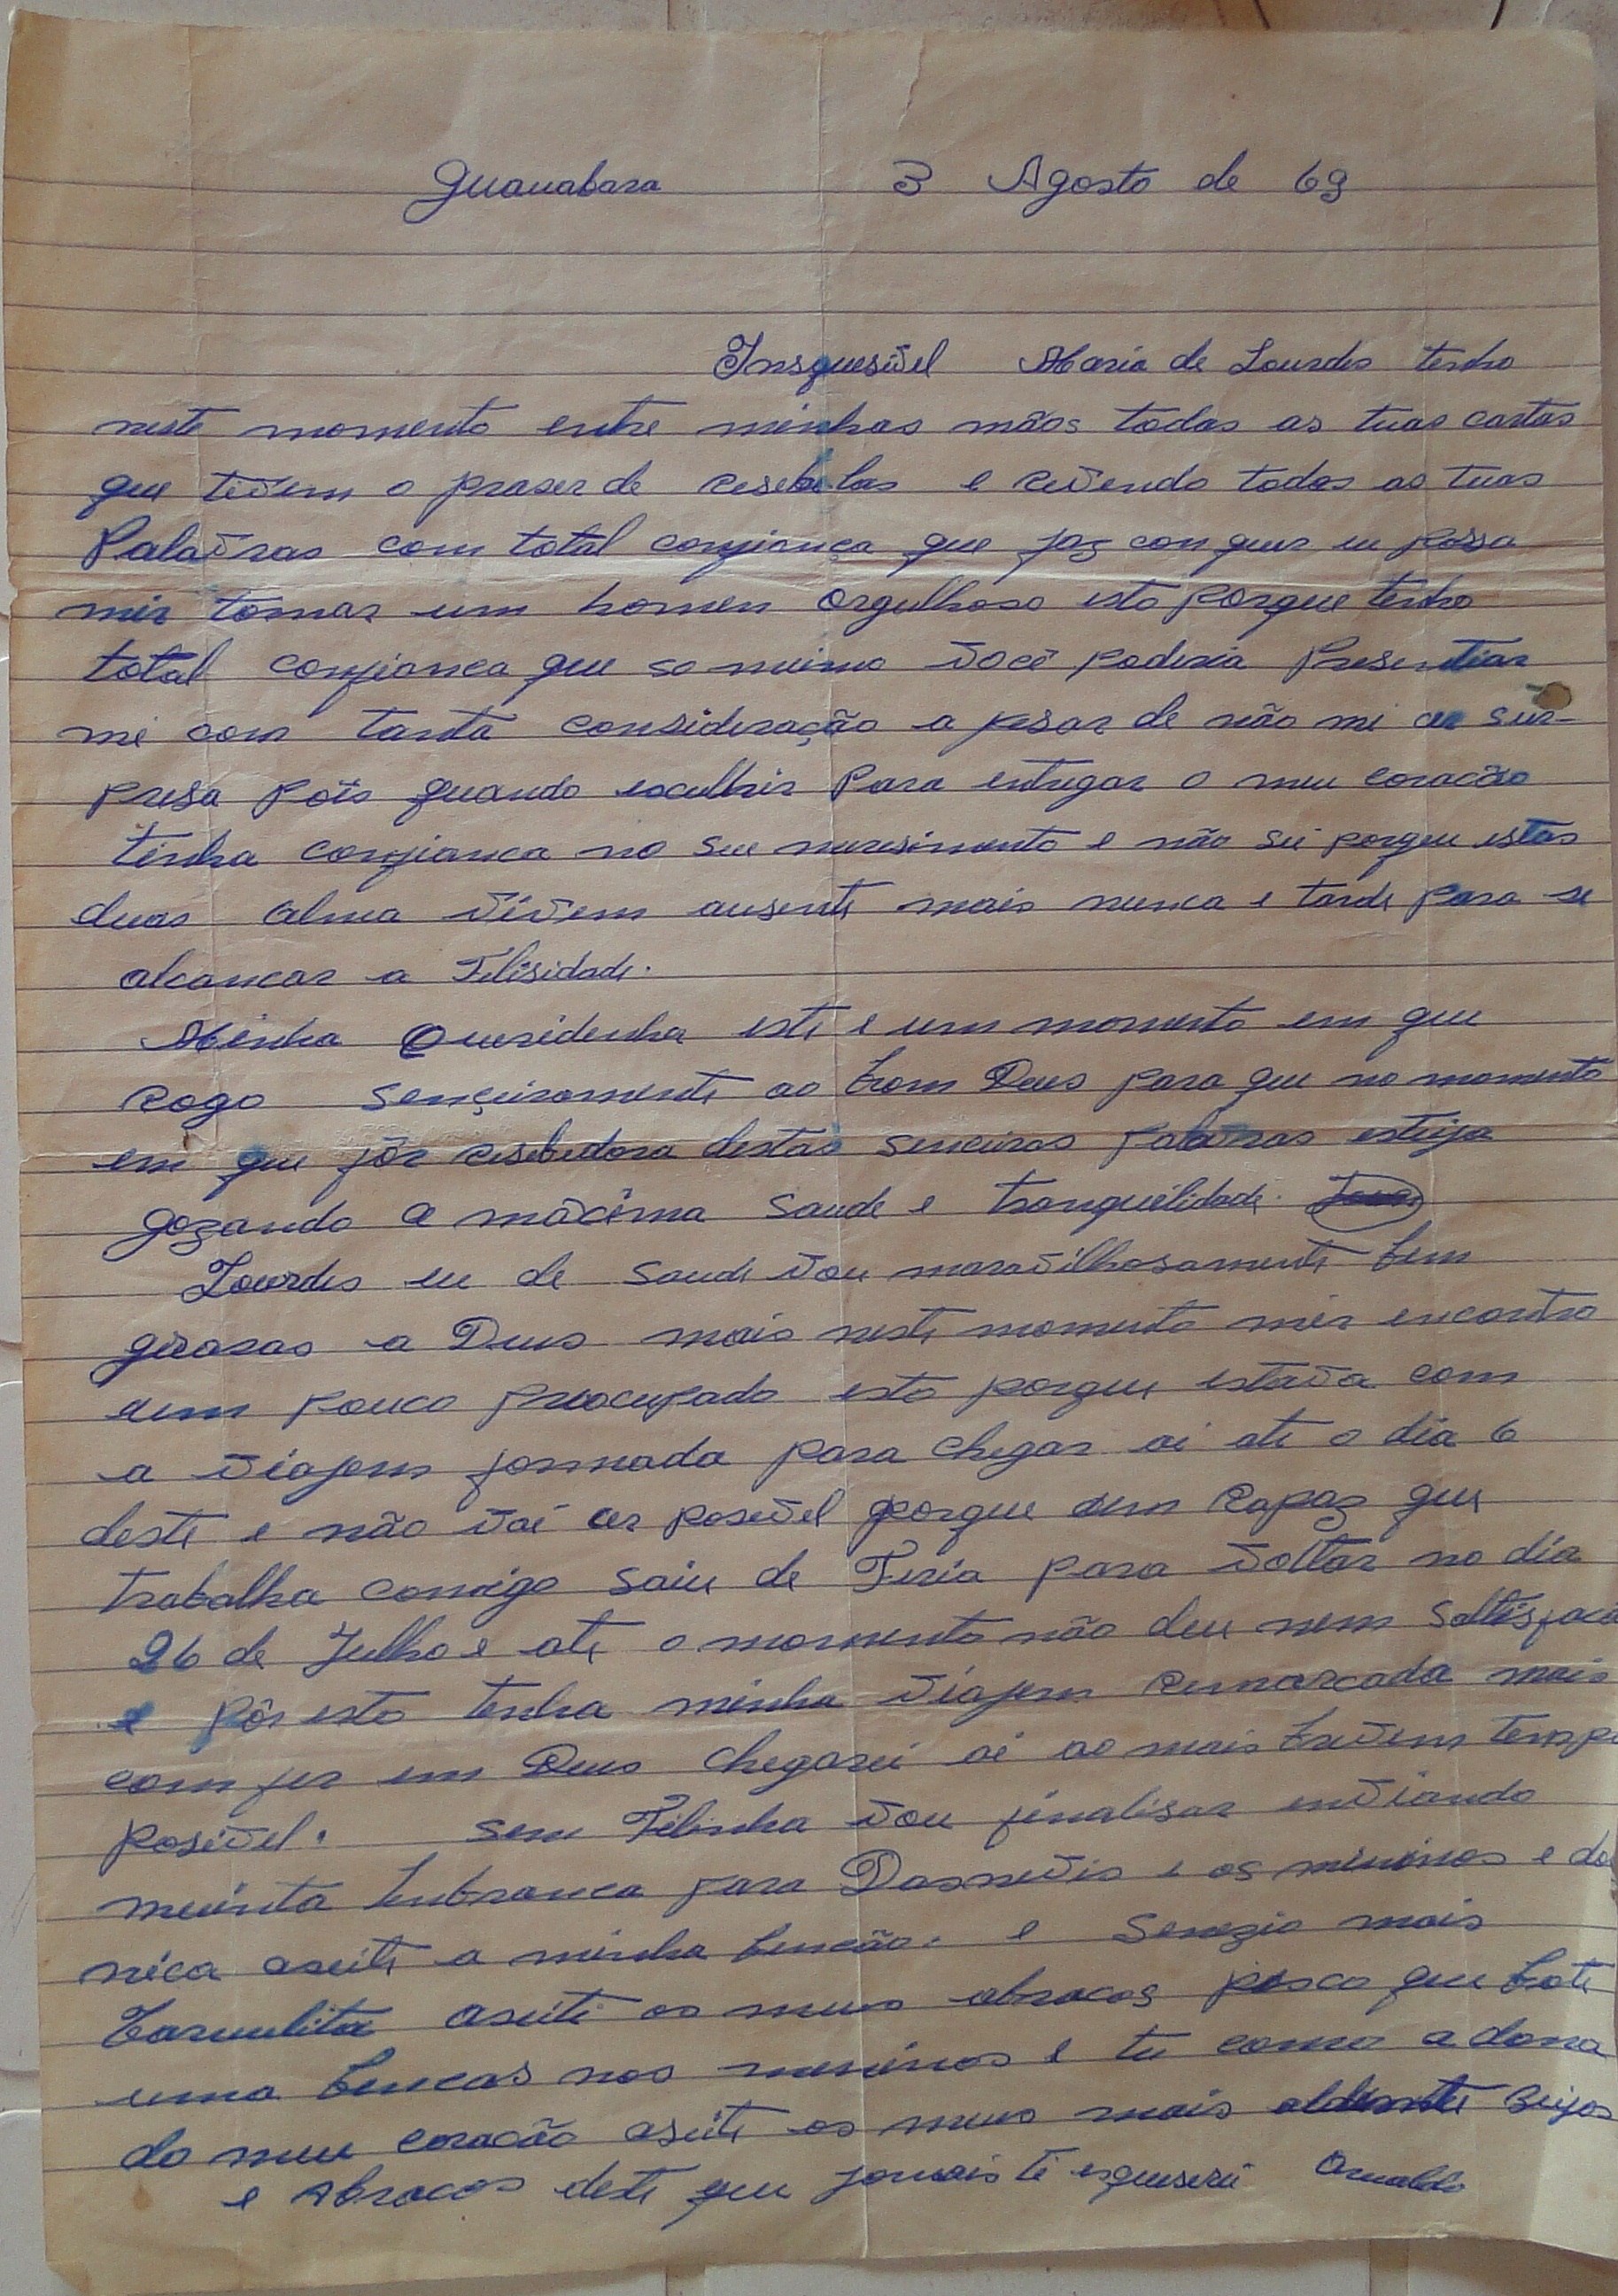 Guanabara 3 Agosto de 69
Insquesivel Maria de Lourdes tenho
neste momento entre minhas mãos todas as tuas cartas
que tivem o praser de resebelas e revendo todas as tuas
Palavras com total confianca que faz con que eu possa
mir tornar um homen orgulhoso isto porque tenho
total confianca que so meimo você poderia Presentiar
mi com tanta consideração a pesar de não mi cer sur-
presa pois quando esculhir para entregar o meu coracão
tinha confianca no seu meresimento e não sei porque estas
duas alma vivem ausente mais nunca e tarde para se
alcancar a Felisidade.
Minha Queridinha este e um momento em que
rogo senceiramente ao bom Deus para que no momento
em que fôr resebedora destas senceiras palavras esteja
gozando a mácima saude e tranquilidade.
Lourdes eu de saude vou maravilhosamente bem
grasas a Deus mais neste momento mir encontro
um pouco preocupado isto porque estava com
a viajem formada para chegar ai ate o dia 6
deste e não vai cer posivel porque um rapaz que
trabalha comigo saiu de Feria para voltar no dia
26 de Julho e ate o momento não deu nem saltisfacão
e pôr isto tenha minha viajem remarcada mais
com fer em Deus chegarei ai ao mais brevem tempo
posivel. sem Filinha vou finalisar enviando
muinta lenbranca para Dasneves e os mininos e do
nica aseite a minha bencão. e Senezio mais
Carmelita aseite os meus abracos pesco que bote
uma bencas nos meninos e tu como a dona
do meu coracão aseite os meus mais aldente Beijos
e Abracos deste que jamais ti esqueserei Arnaldo